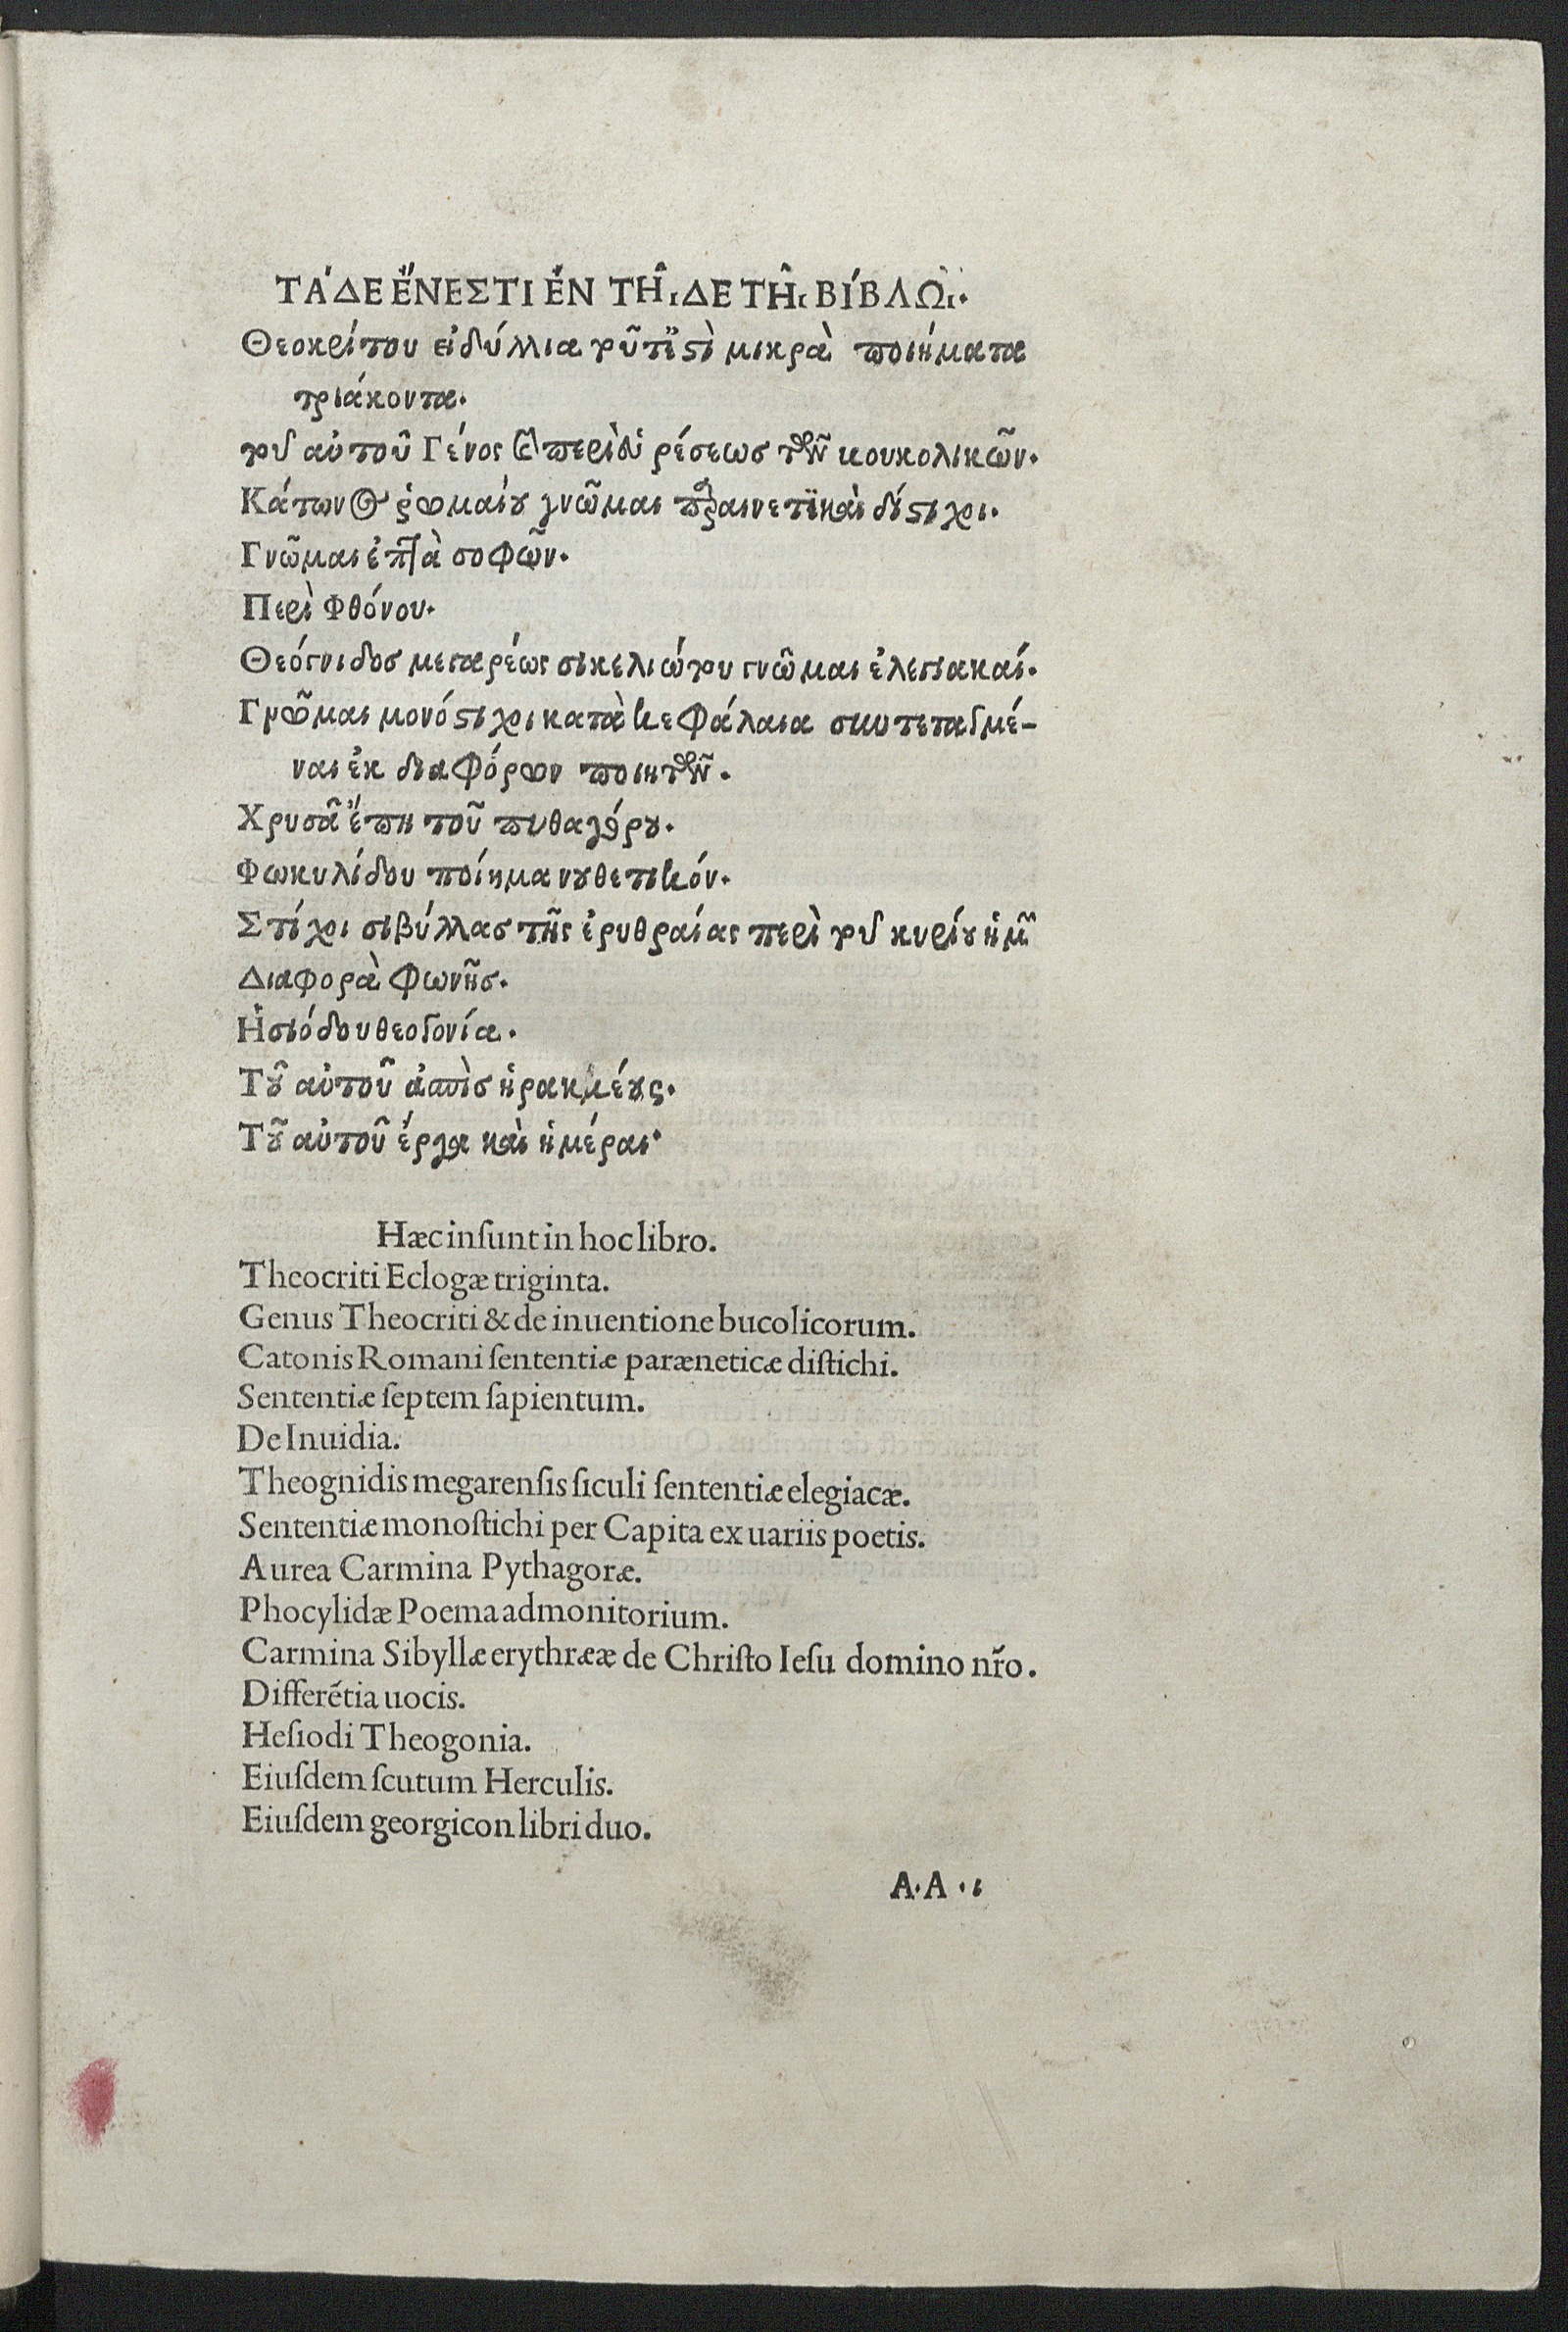 ΤΆΔΕ ἜΝΕΣΤΙ ἘΝ Τῌ͂ΔΕ Τῌ͂ ΒΊΒΛῼ.
Θεοκρίτου εἰδύλλια τουτέστὶ μικρὰ ποιήματα
τριάκοντα.
τοῦ αὐτοῦ Γένος καὶ περὶ εὑρέσεως τῶν κουκολικῶν.
Κάτωνος ῥωμαίου γνῶμαι παραινετϊκαὶ δίστιχοι.
Γνῶμαι ἑπτὰ σοφῶν.
Περὶ Φθόνου.
Θεόγνιδοσ μεγαρέως σικελιώτου γνῶμαι ἐλεγιακαί.
Γνῶμαι μονόστιχοι κατὰ κεφάλαια συντεταγμέ-
ναι ἐκ διαφόρων ποιητῶν.
Χρυσᾶ ἔπη τοῦ πυθαγόρου.
Φωκυλίδου ποίημα νουθετικόν.
Στίχοι σιβύλλασ τῆς ἐρυθραίας περὶ τοῦ κυρίου ἡμῶ̃
Διαφορὰ φωνῆσ.
Ἡσιόδου θεογονία.
Τοῦ αὐτοῦ ἀσπὶσ ἡρακλέους.
Τοῦ αὐτοῦ ἔργα καὶ ἡμέραι.
Hæc inſunt in hoc libro.
Theocriti Eclogæ triginta.
Genus Theocriti & de inuentione bucolicorum.
Catonis Romani ſententiæ paræneticæ diſtichi.
Sententiæ ſeptem ſapientum.
De Inuidia.
Theognidis megarenſis ſiculi ſententiæ elegiacæ.
Sententiæ monoſtichi per Capita ex uariis poetis.
Aurea Carmina Pythagoræ.
Phocylidæ Poema admonitorium.
Carmina Sibyllæ erythrææ de Chriſto Ieſu domino nr̃o.
Differẽtia uocis.
Heſiodi Theogonia.
Eiuſdem ſcutum Herculis.
Eiuſdem georgicon libri duo.
A.A.ι